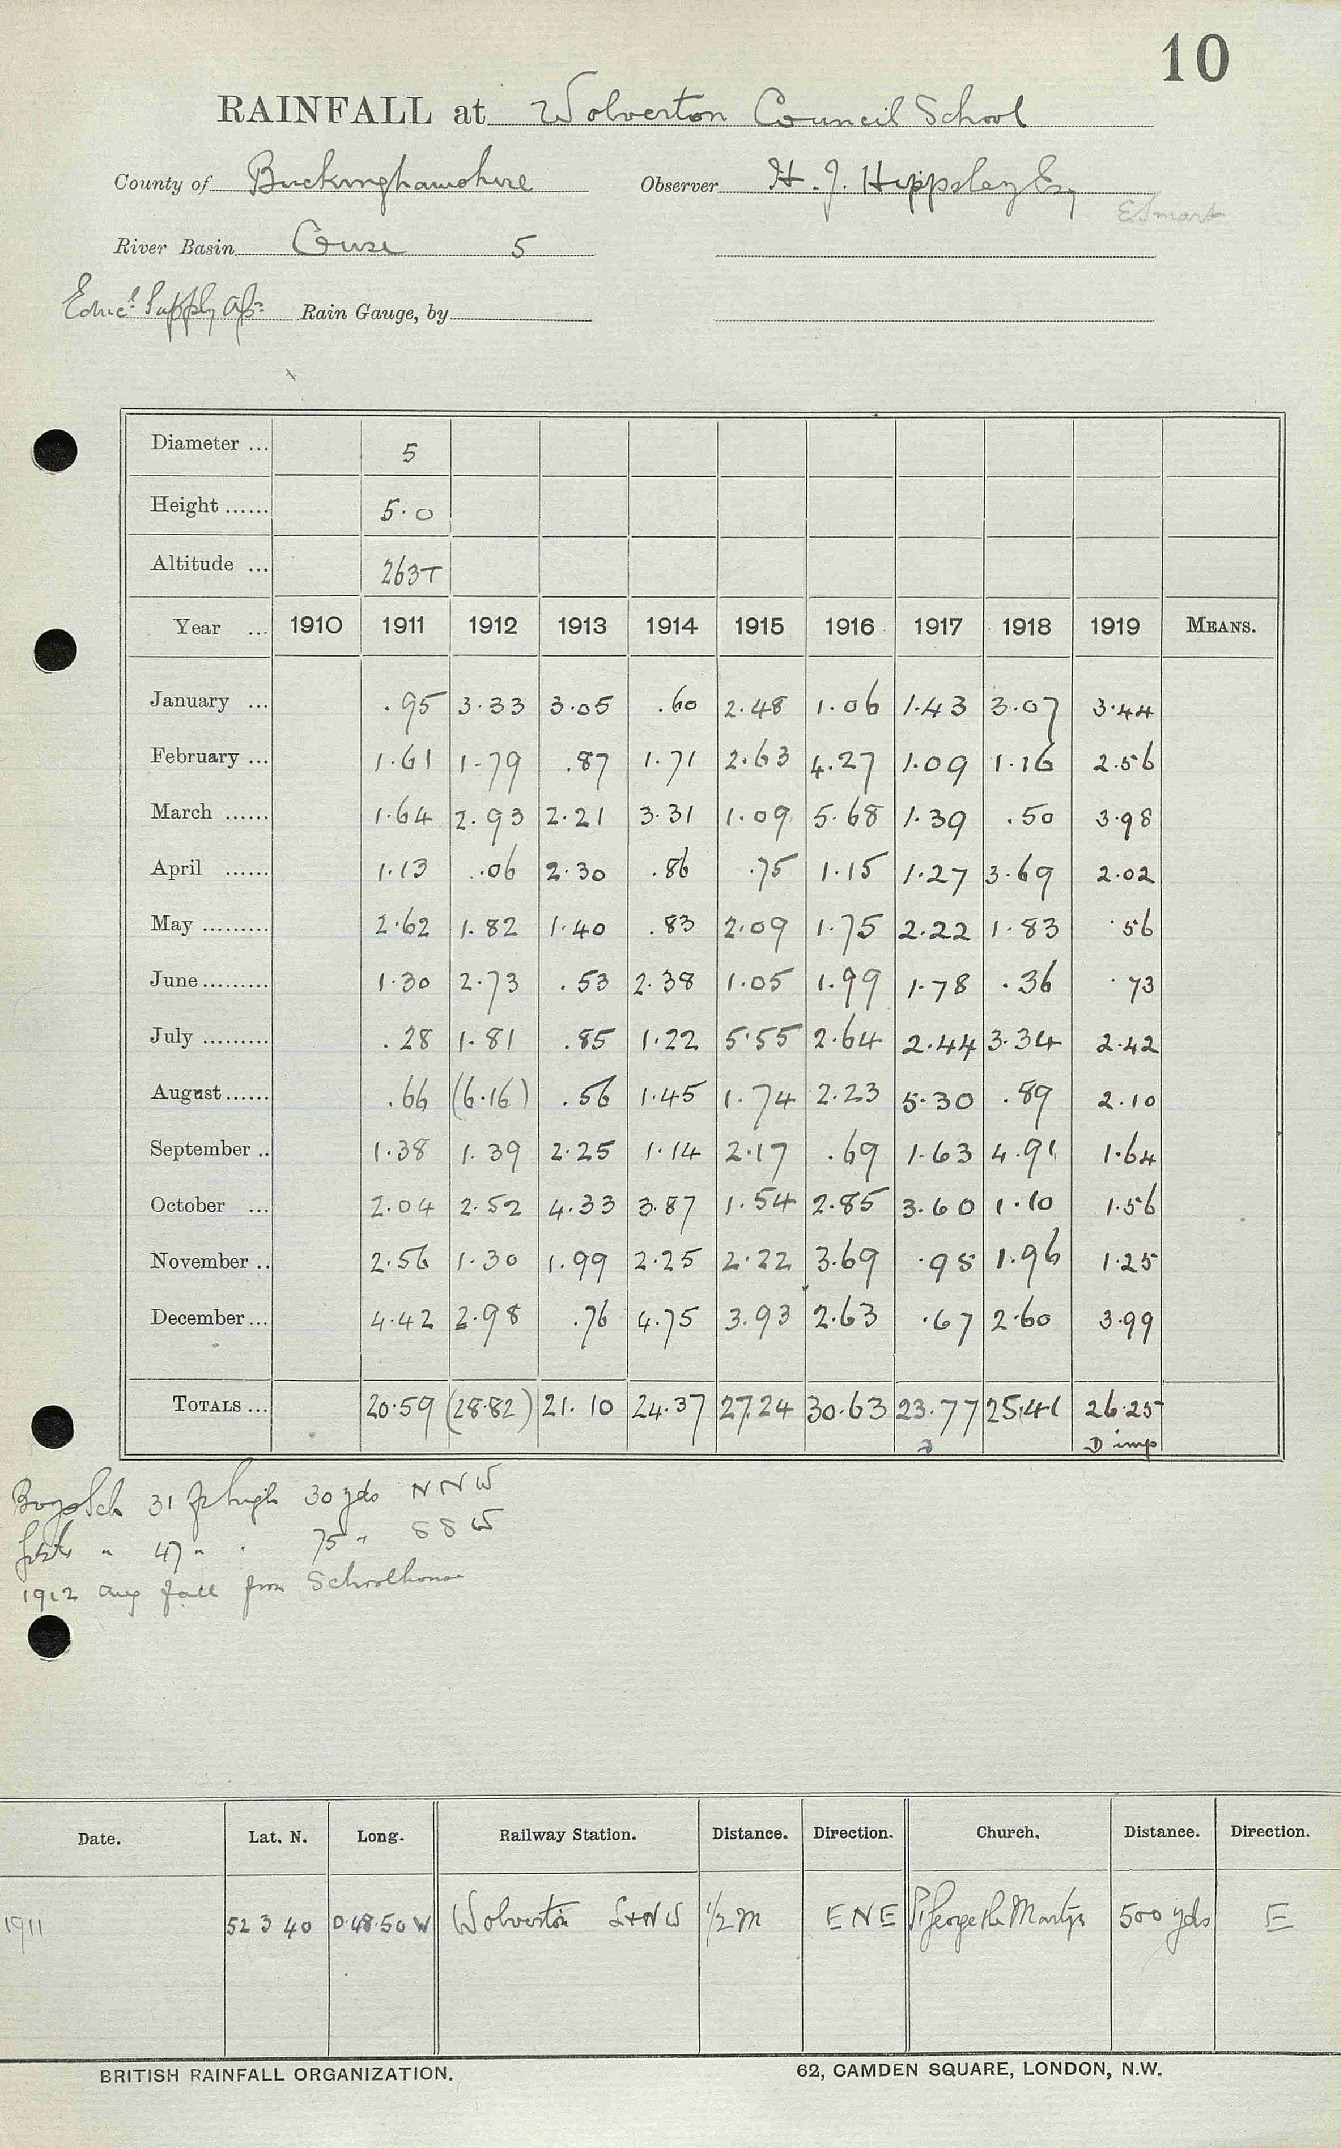 10
RAINFALL at Wolverton Council School
County of Buckinghamshire Observer H. J. Hippsley Esq
E Smart
River Basin Ouse 5
Educl Supply Assn Rain Gauge, by
Diameter ... 5
Height ...... 5.0
Altitude ... 263T
Year ... 1910 1911 1912 1913 1914 1915 1916 1917 1918 1919 MEANS.
January ... .95 3.33 3.05 .60 2.48 1.06 1.43 3.07 3.44
February ... 1.61 1.79 .87 1.71 2.63 4.27 1.09 1.16 2.56
March ...... 1.64 2.93 2.21 3.31 1.09 5.68 1.39 .50 3.98
April ...... 1.13 .06 2.30 .86 .75 1.15 1.27 3.69 2.02
May ......... 2.62 1.82 1.40 .83 2.09 1.75 2.22 1.83 .56
June ......... 1.30 2.73 .53 2.38 1.05 1.99 1.78 .36 .73
July ......... .28 1.81 .85 1.22 5.55 2.64 2.44 3.34 2.42
August ...... .66 (6.16) .56 1.45 1.74 2.23 5.30 .89 2.10
September .. 1.38 1.39 2.25 1.14 2.17 .69 1.63 4.91 1.64
October ... 2.04 2.52 4.33 3.87 1.54 2.85 3.60 1.10 1.56
November .. 2.56 1.30 1.99 2.25 2.22 3.69 .95 1.96 1.25
December ... 4.42 2.98 .76 4.75 3.93 2.63 .67 2.60 3.99
TOTALS ... 20.59 (28.82) 21.10 24.37 27.24 30.63 23.77 25.41 26.25
D D imp
Boys Sch 31 ft high 30 yds NNW
" 47 " " 75 " SSW
1912 Aug fall from Schoolhouse
Date. Lat. N. Long. Railway Station. Distance. Direction. Church. Distance. Direction.
1911 52 3 40 0.48.50 W Wolverton L&NW 1/2 m ENE St George the Martyr 500 yds E
BRITISH RAINFALL ORGANIZATION. 62, CAMDEN SQUARE, LONDON, N.W.